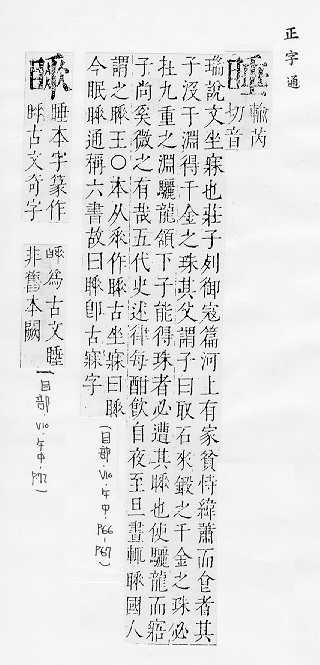 正字通
睡
輸芮
切音
瑞說文坐寐也莊子列御寇篇河上有家貧恃緯蕭而食者其
子沒于淵得千金之珠其父謂子曰取石來鍛之千金之珠必
在九重之淵驪龍頷下子能得珠者必遭其睡也使驪龍而寤
子尚奚微之有哉五代史述律每酣飮自夜至旦晝輒睡國人
謂之睡王〇本从𠂹作睡古坐寐曰睡
今眠睡通稱六書故曰睡卽古寐字
(目部.V10.午中.P66-P67)
睡本字篆作
古文奇字
爲古文睡
非舊本闕
(目部.V10.午中.P72)